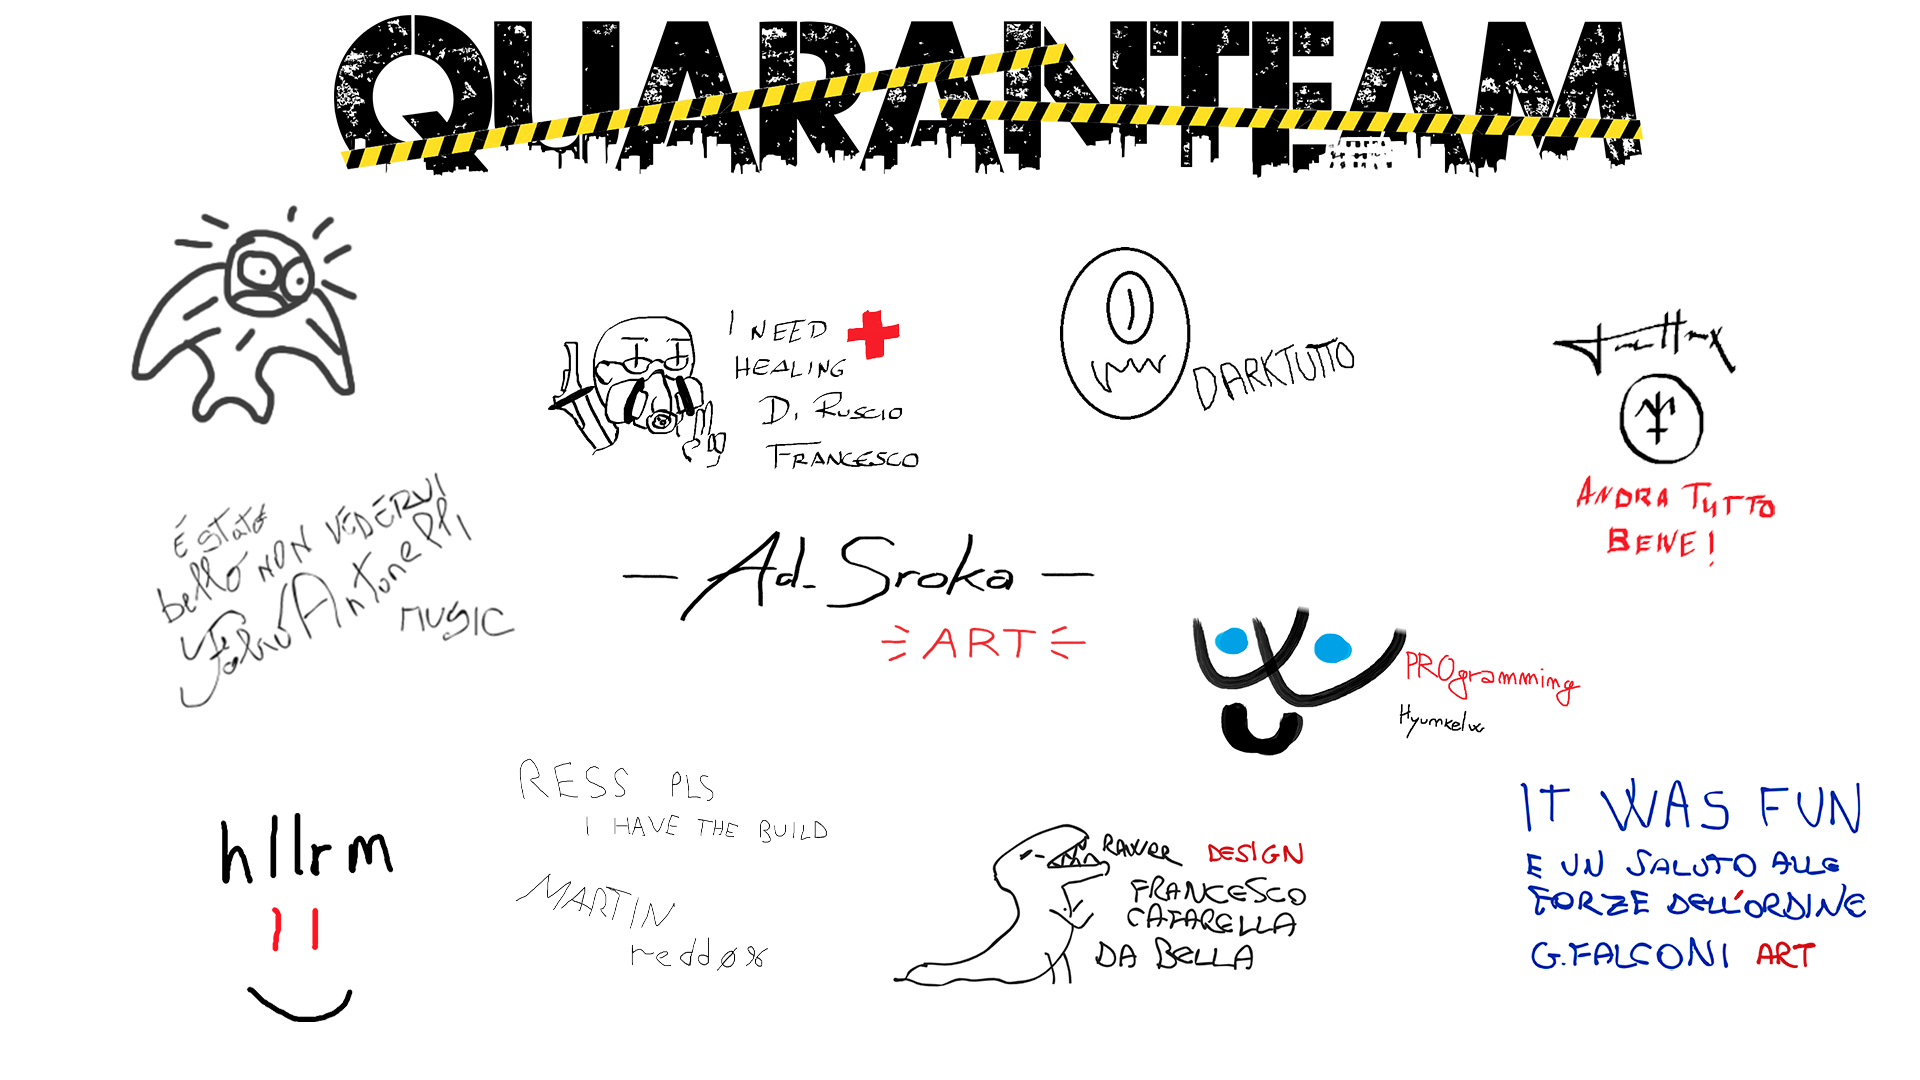 QUARANTEAM
I NEED
HEALING
Di Ruscio
FRANCESCO
DARKTUTTO
ANDRA TUTTO
BENE!
È stato
bello NON VEDERVI
Fabio Antonelli
MUSIC
- Ad_Sroka -
ART
PROgramming
hllrm
RESS PLS
I HAVE THE BUILD
MARTIN
redd0%
RAWRR DESIGN
FRANCESCO
CATARELLA
DA BELLA
IT WAS FUN
E UN SALUTO ALLE
FORZE DELL'ORDINE
G.FALCONI ART